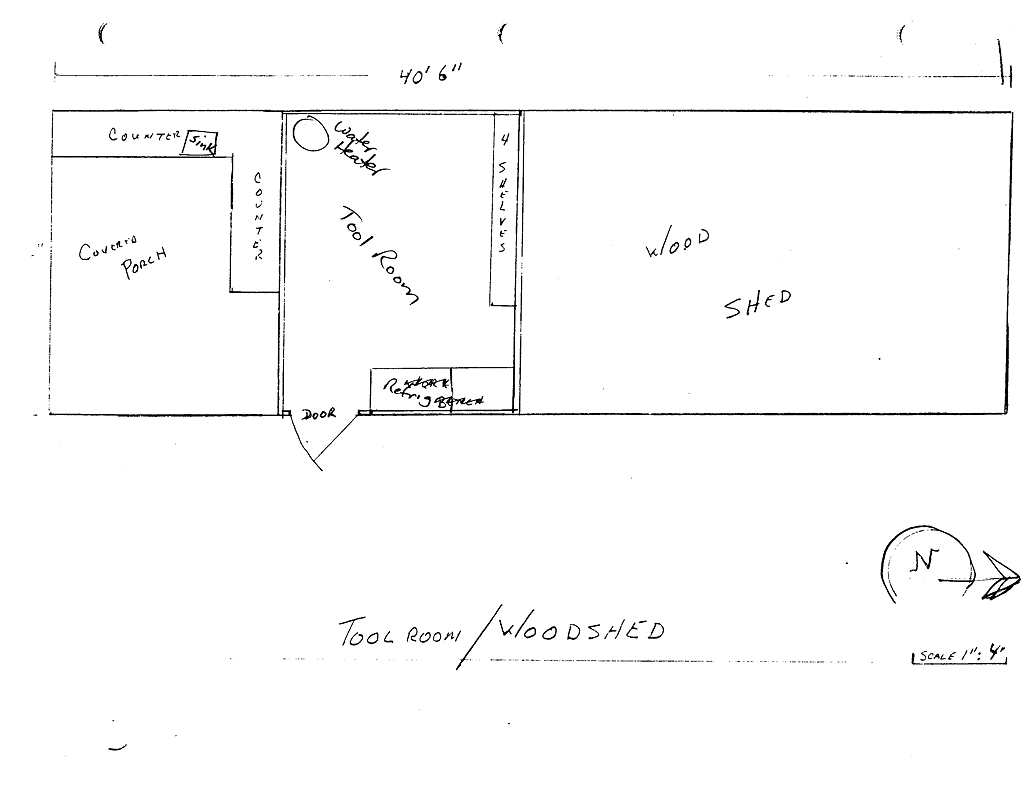 40' 6"
COUNTER
Sink
COUNTER
COVERED
PORCH
Water
Heater
Tool Room
4 SHELVES
WORK
Refrig BENCH
DOOR
WOOD
SHED
N
TOOL ROOM / WOODSHED
SCALE 1": 4'